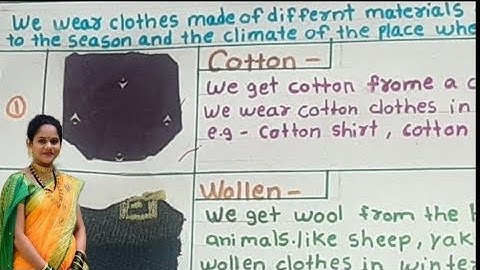 We wear clothes made of differnt materials
to the season and the climate of the place
①
Cotton -
We get cotton frome a
We wear cotton clothes in
e.g - Cotton shirt, cotton
Wollen -
We get wool from the
animals. like sheep, yak
wollen clothes in winte